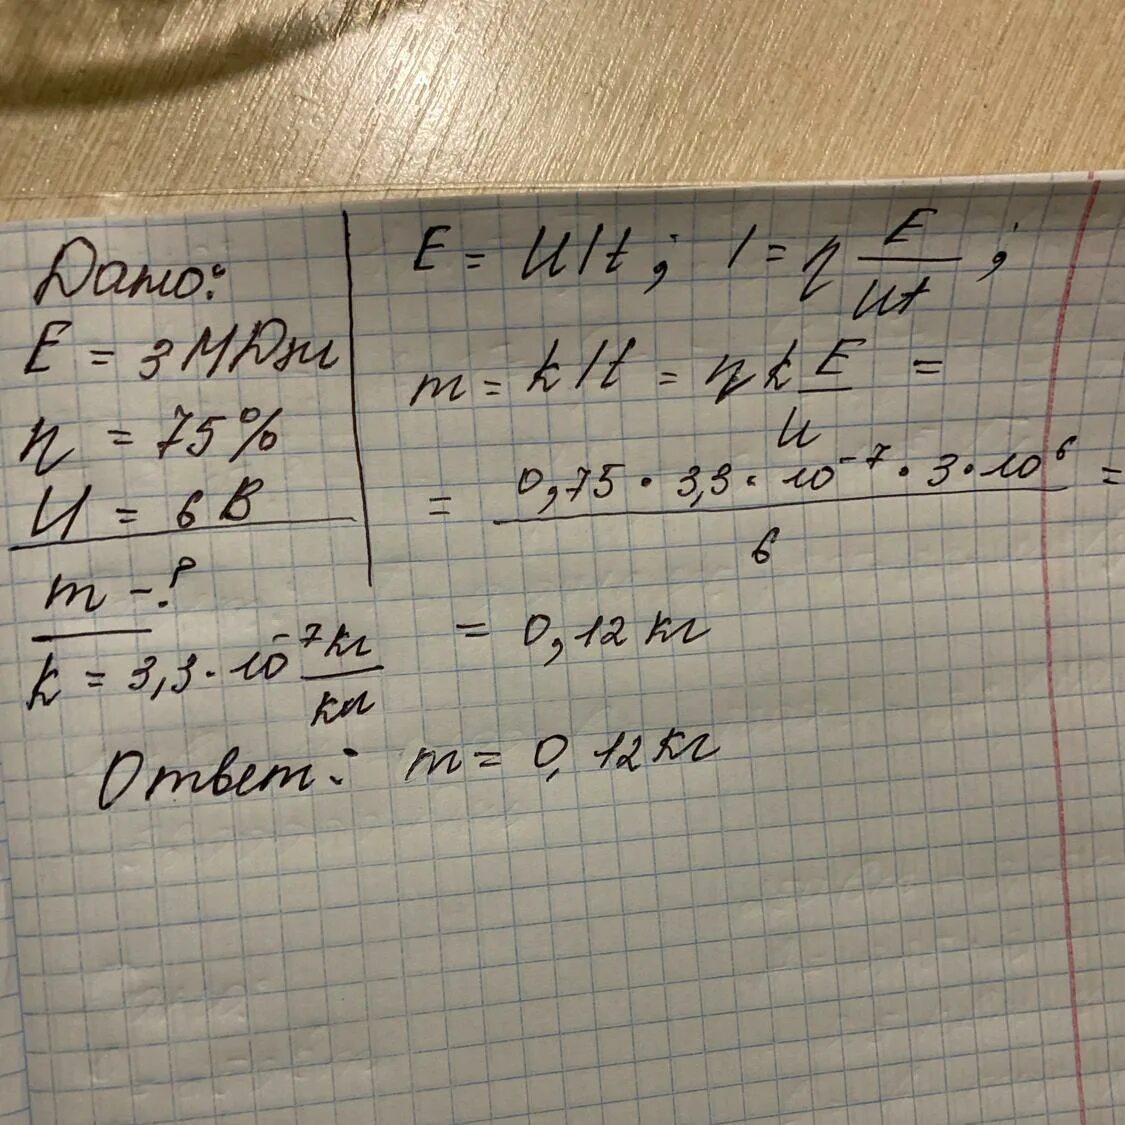 Дано:
E = 3 МДж
η = 75%
U = 6 В
m - ?
k = 3,3 · 10⁻⁷ кг/кл
E = UIt; I = η E/Ut;
m = kIt = ηk E/U =
= 0,75 · 3,3 · 10⁻⁷ · 3 · 10⁶ / 6 =
= 0,12 кг
Ответ: m = 0,12 кг